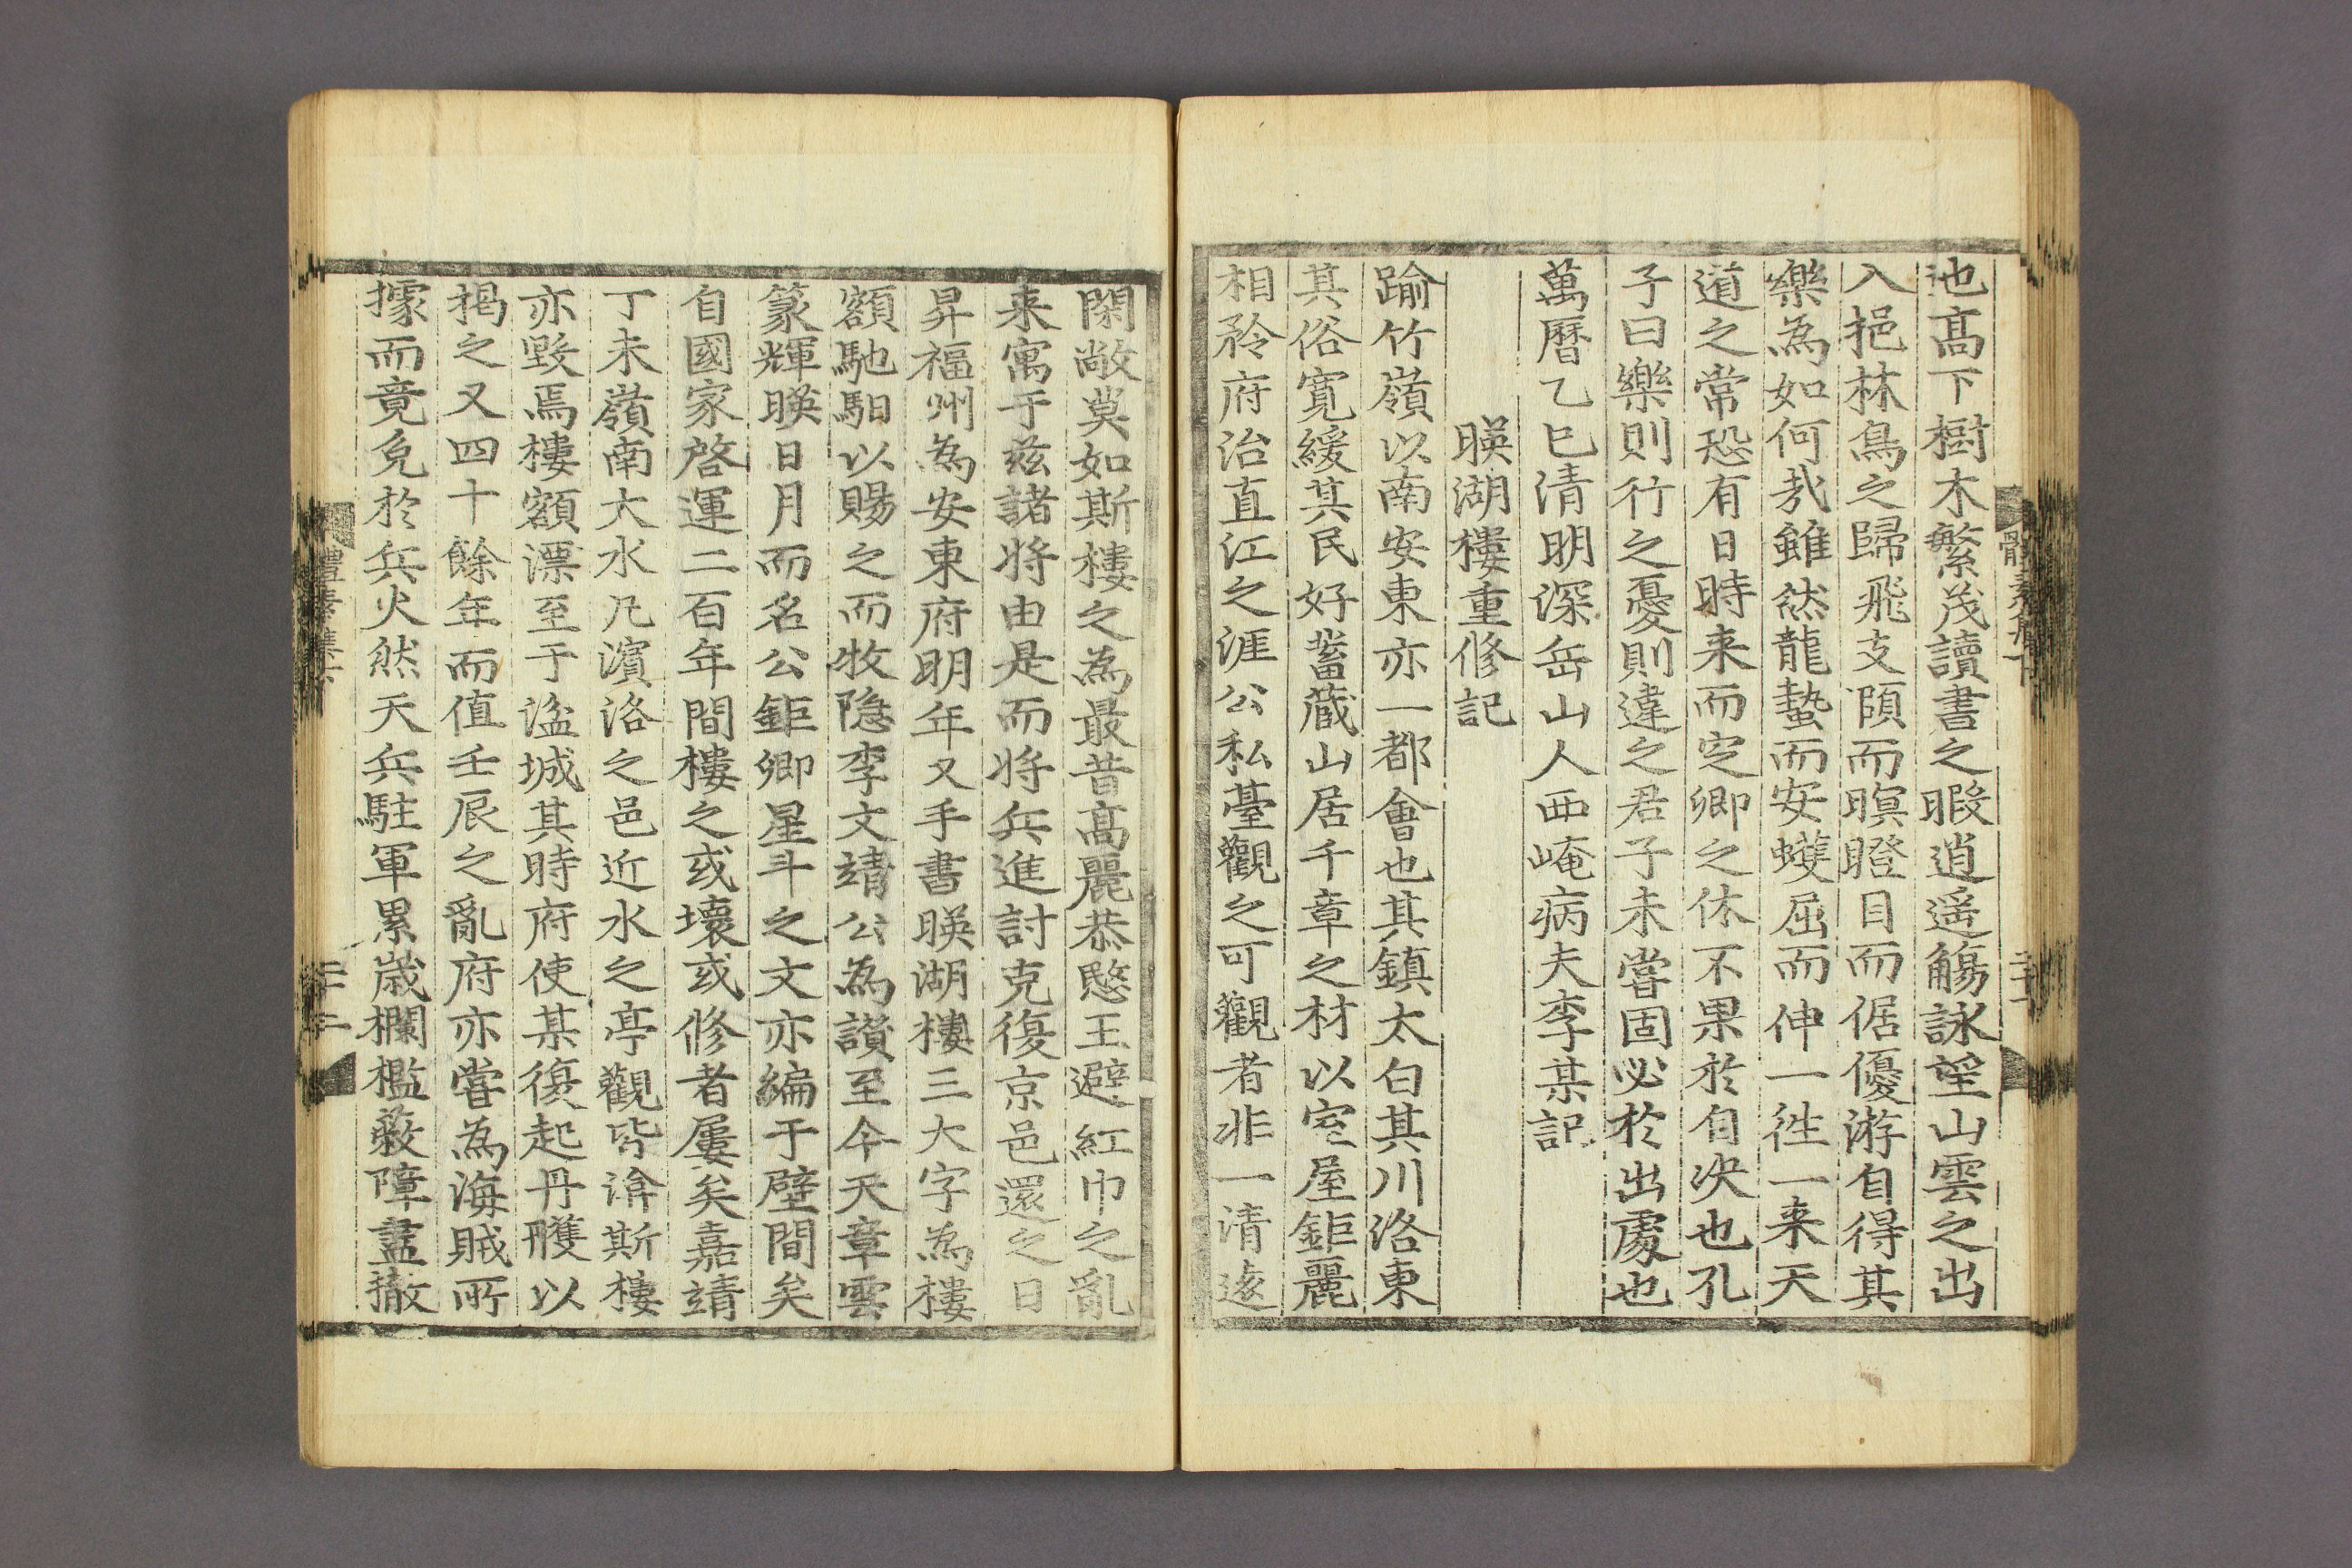 池高下樹木繁茂讀書之暇逍遥觴詠望山雲之出
入挹林鳥之歸飛支頤而瞑瞪目而倨優游自得其
樂為如何㢤雖然龍蟄而安蠖屈而伸一徃一来天
道之常恐有日時来而㝎卿之休不果於自决也孔
子曰樂則行之憂則違之君子未嘗固必於出處也
萬曆乙巳清明深岳山人西崦病夫李某記
暎湖樓重修記
踰竹嶺以南安東亦一都會也其鎮太白其川洛東
其俗寛緩其民好蓄蔵山居千章之材以室屋鉅麗
相矜府治直江之涯公私臺觀之可觀者非一清邃
閑敞莫如斯樓之為最昔髙麗恭愍王避紅巾之亂
来寓于兹諸将由是而将兵進討克復京邑還之日
昇福州為安東府明年又手書暎湖樓三大字為樓
額馳馹以賜之而牧隐李文靖公為讃至今天章雲
篆輝暎日月而名公鉅卿星斗之文亦編于壁間矣
自國家啓運二百年間樓之或壊或修者屢矣嘉靖
丁未嶺南大水凡濵洛之邑近水之亭觀皆渰斯樓
亦毀焉樓額漂至于盜城其時府使某復起丹雘以
揭之又四十餘年而值壬辰之亂府亦嘗為海賊所
據而竟免於兵火然天兵駐軍累歳欄檻蔽障盡撤